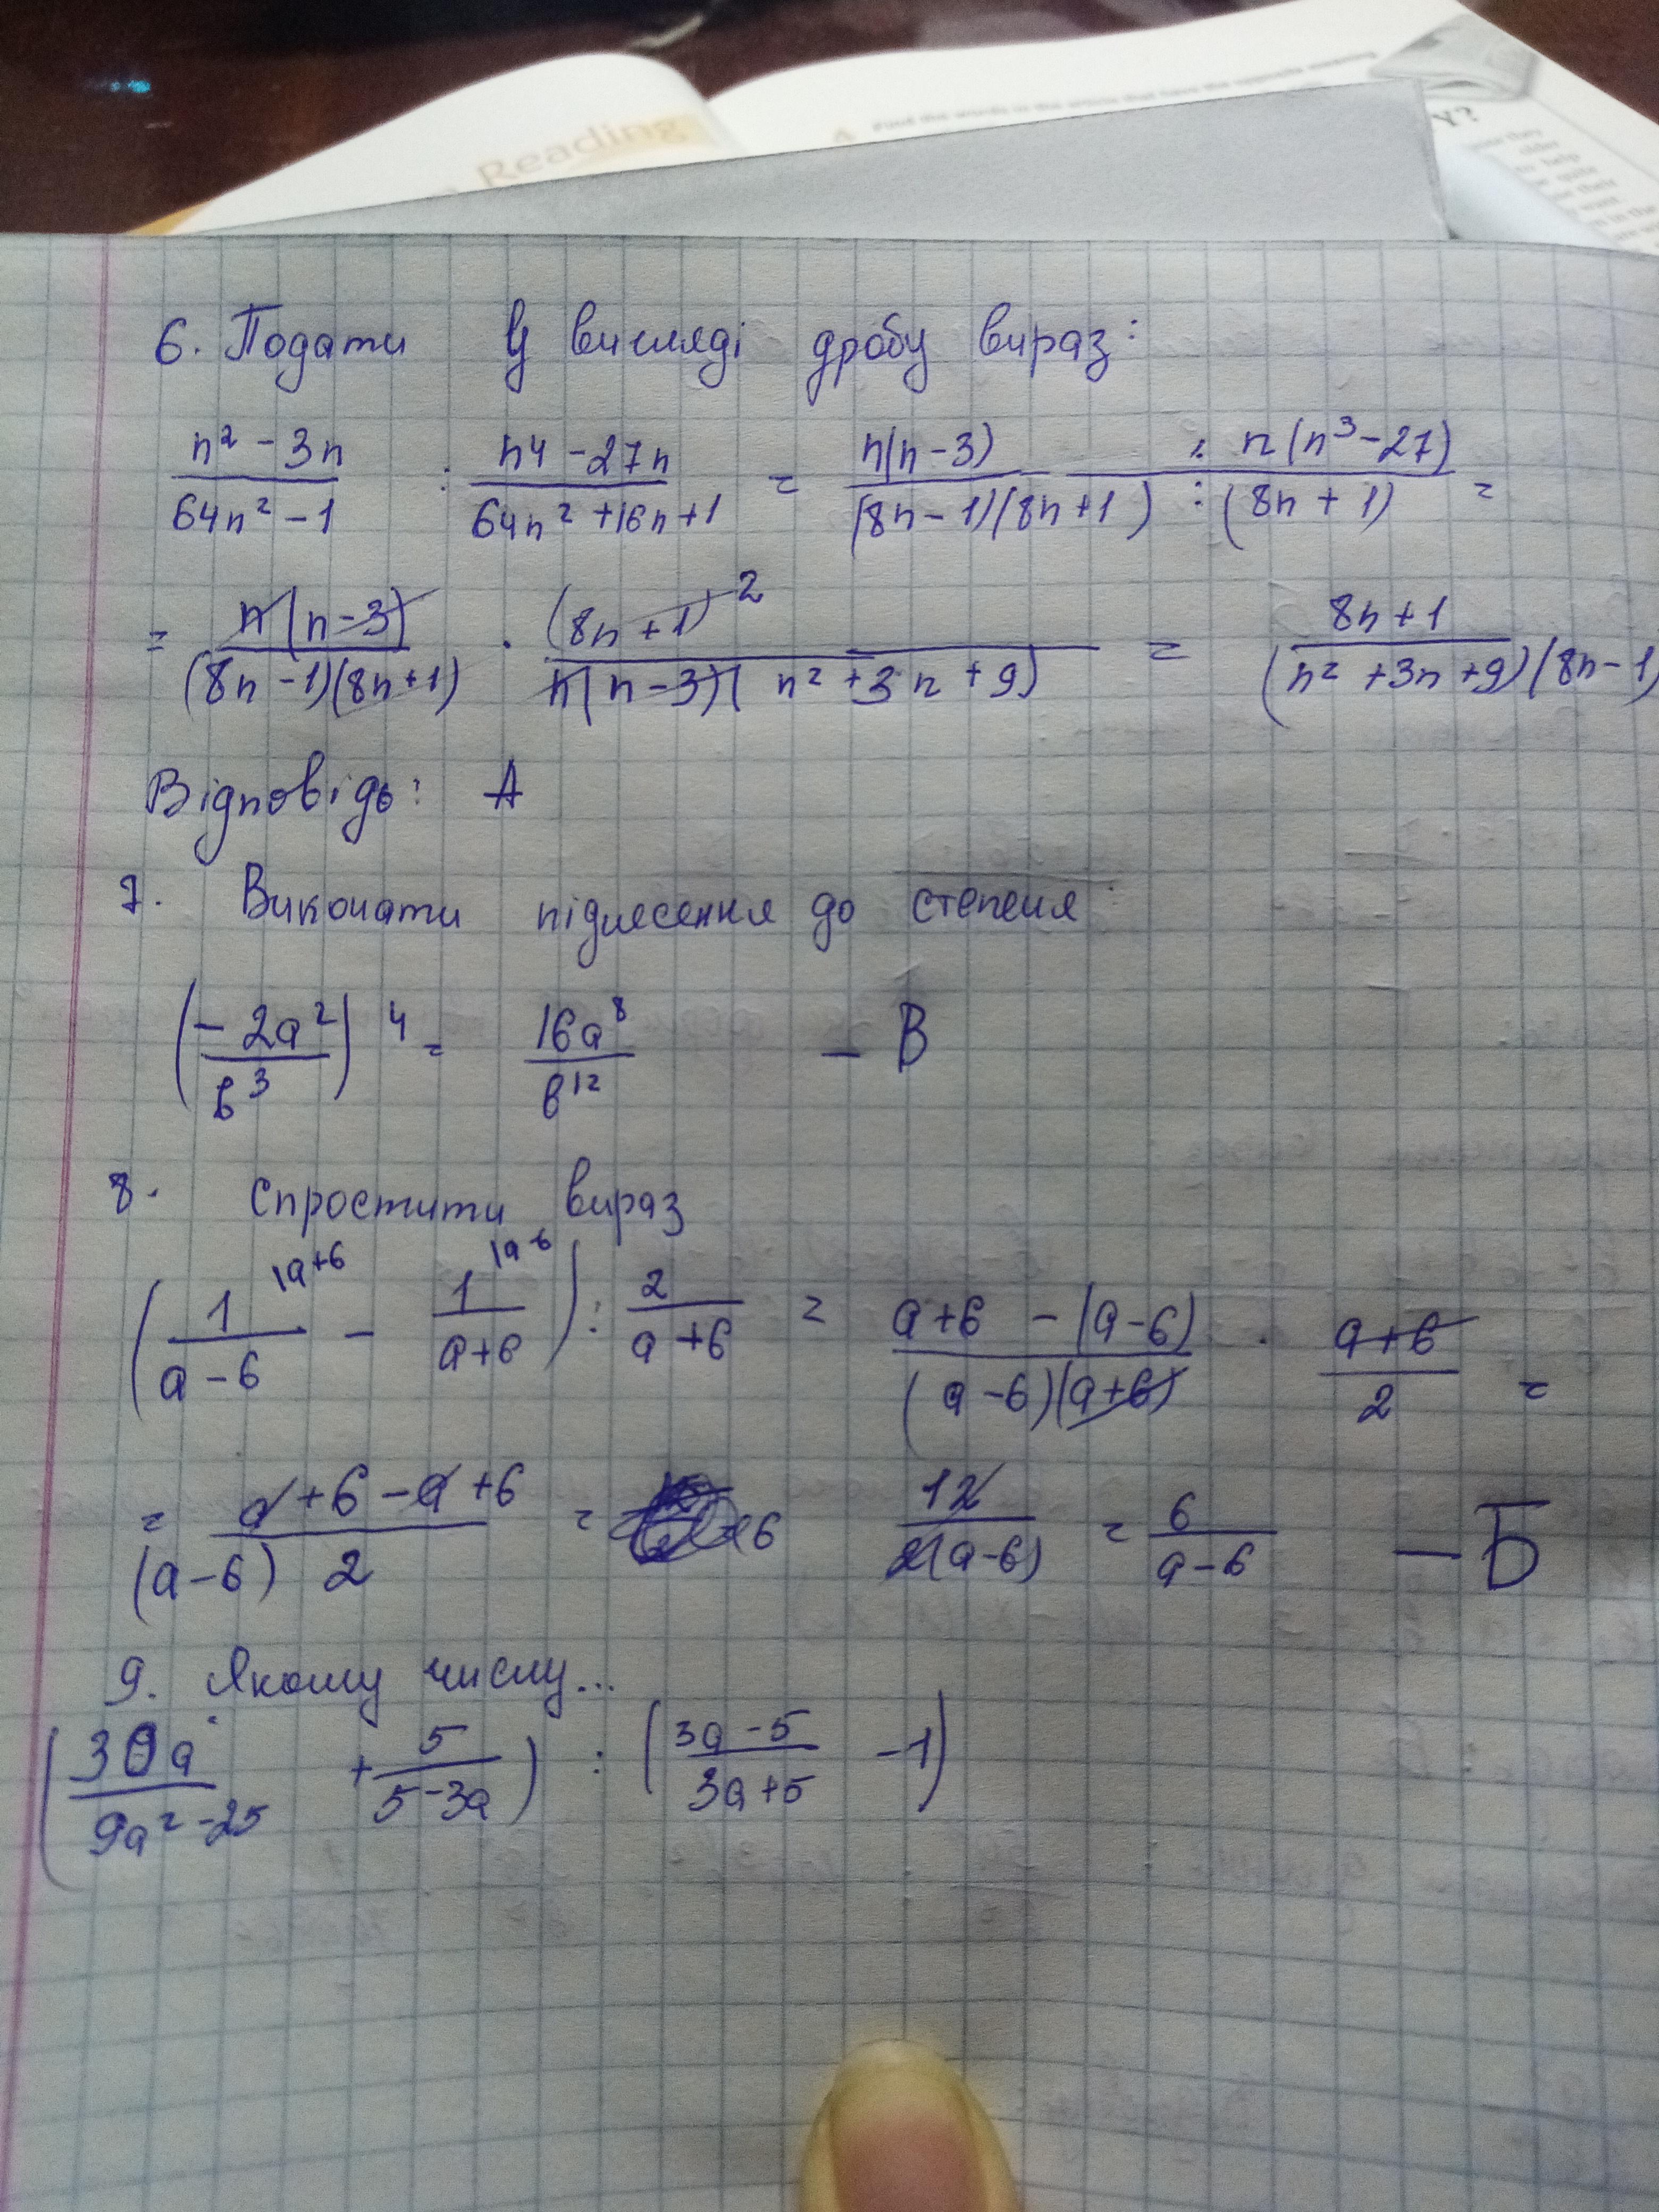 Reading
A Find the words in the article that have the opposite meaning
Y?
6. Подати у вигляді дробу вираз:
n² - 3n / 64n² - 1 : n4 - 27n / 64n² + 16n + 1 = n(n - 3) / (8n - 1)(8n + 1) : n(n³ - 27) / (8n + 1) =
= n(n - 3) / (8n - 1)(8n + 1) · (8n + 1)² / n(n - 3)(n² + 3n + 9) = 8n + 1 / (n² + 3n + 9)(8n - 1)
Відповідь: А
7. Виконати піднесення до степеня
(- 2a² / b³)4 = 16a⁸ / b¹² - В
8. Спростити вираз
(1 / a - 6 |a+6 - 1 / a + 6 |a-6) : 2 / a + 6 = a + 6 - (a - 6) / (a - 6)(a + 6) · a + 6 / 2 =
= a + 6 - a + 6 / (a - 6) 2 = 12 / 2(a - 6) = 6 / a - 6 - Б
9. Якому числу...
(30a / 9a² - 25 + 5 / 5 - 3a) : (3a - 5 / 3a + 5 - 1)